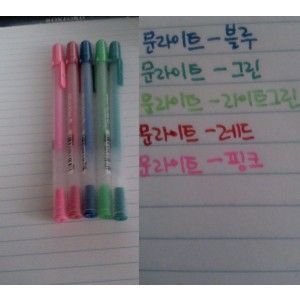 문라이트-블루
문라이트-그린
문라이트-라이트그린
문라이트-레드
문라이트-핑크